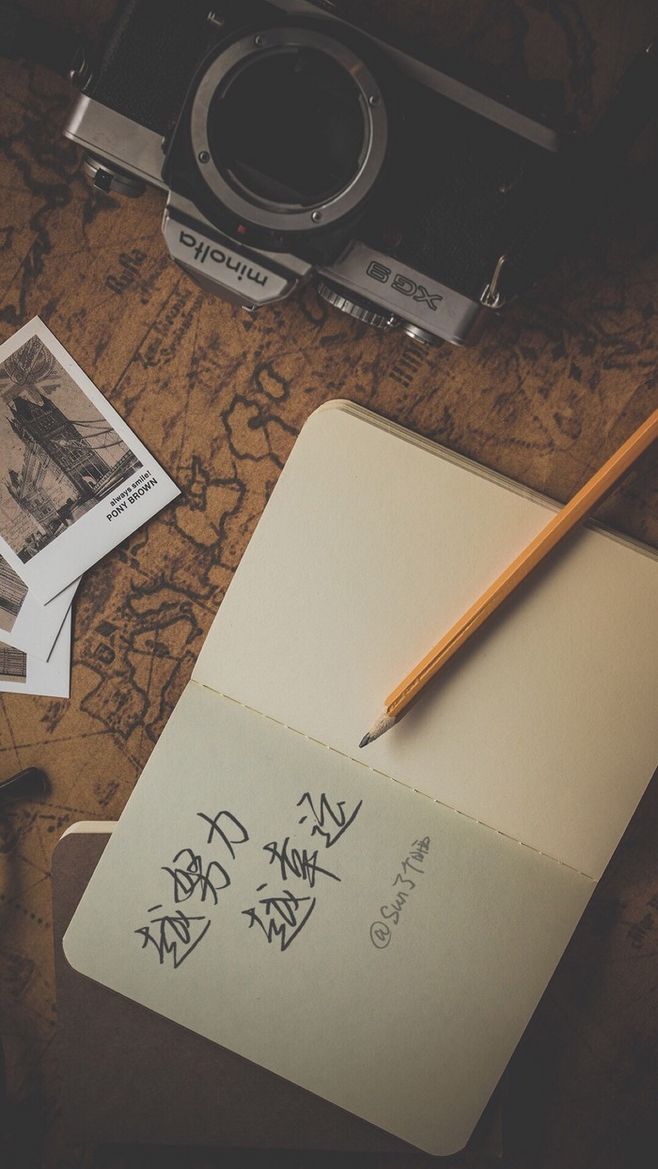 越努力
越幸运
@Sun了个晒
always smile!
PONY BROWN
minolta
XG 9